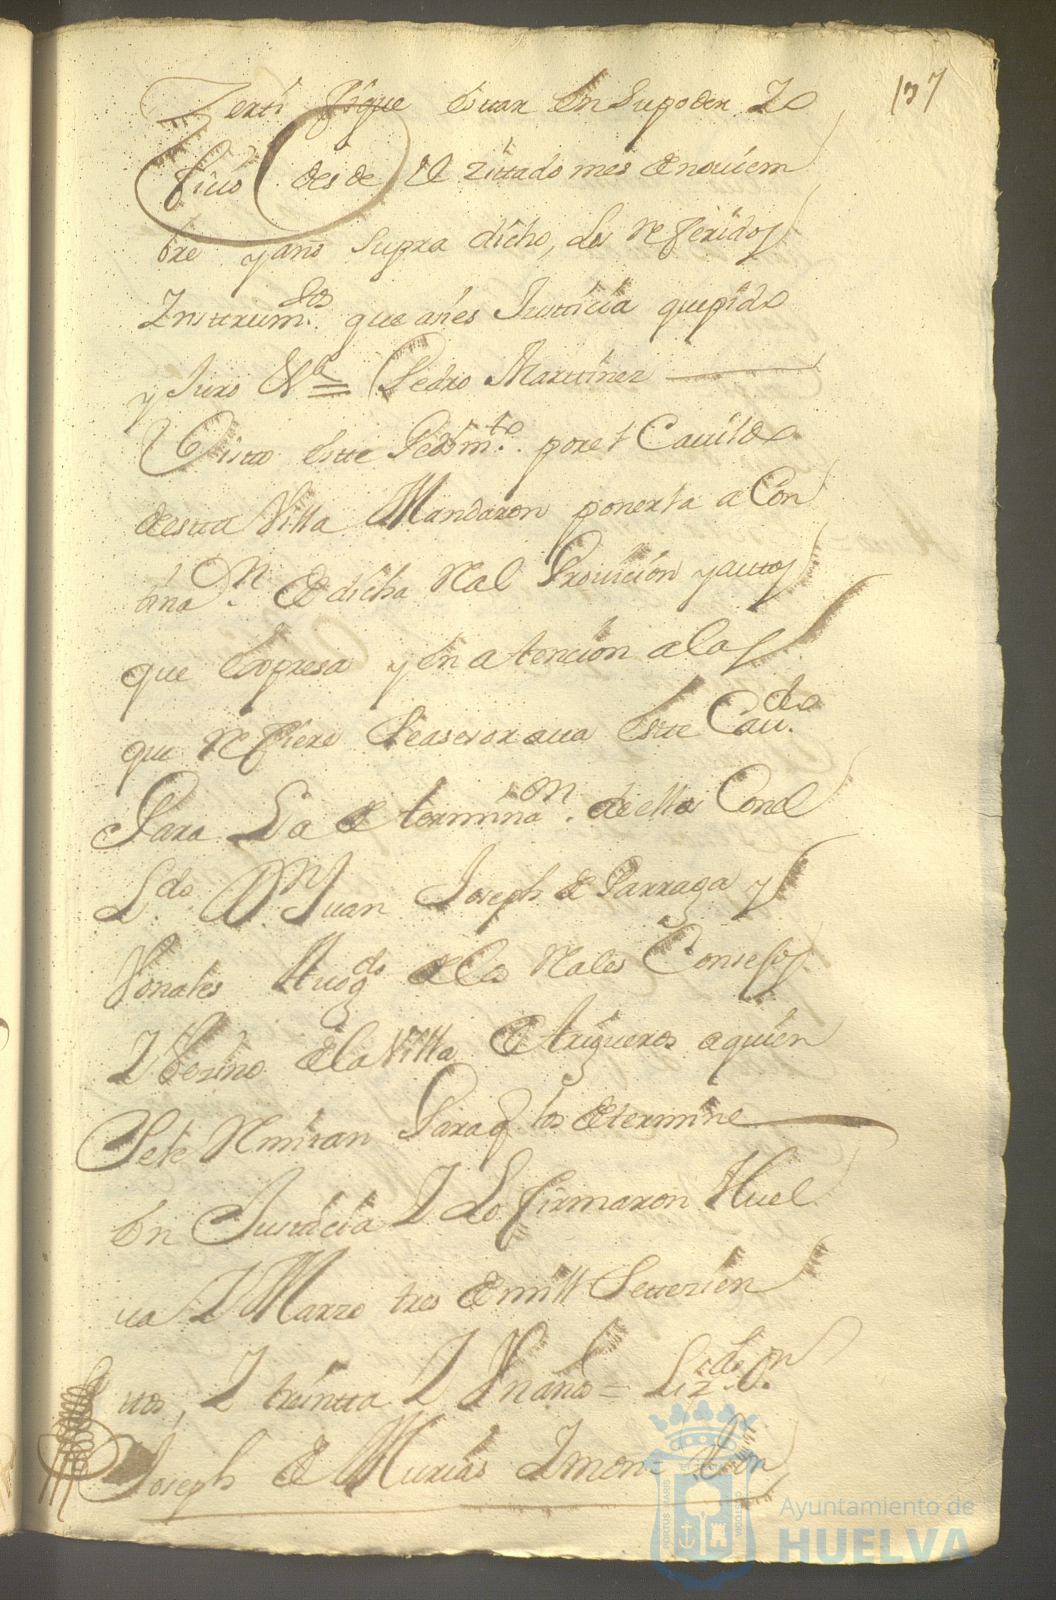 137
Zertifique estar en Su poder Y o
fició desde el zittado mes de noviem
bre y ano Supra dicho, los referidos
Ynstrum.tos que a nes Justicia que pido
y Juro &.a = Pedro Marttinez
Visto este Pedim.to por el Cavildo
desta Villa Mandaron ponerla a Con
tina.n de dicha Real Provicion y autos
que Expresa y en atencion a los
que refiere Se asesorava este Cav.do
Para La determina.on de ellos Con el
L.do D.n Juan Joseph de Parraga y
Vonales Avog.do de los Reales Consejos
Y Vezino de la Villa de Trigueros a quien
Se le Remitan Para q. los determine
En Justicia Y Lo firmaron Huel
va Y Marzo tres de mill Settezien
ttos, Y treintta Y Un año = Liz.do D.n
Joseph de Murias Ymon Don
Ayuntamiento de
HUELVA